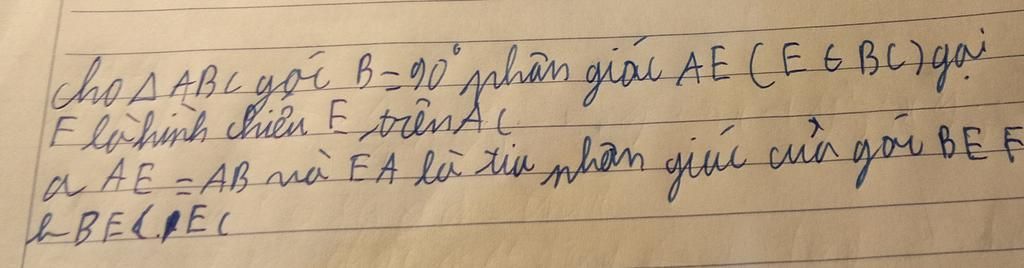 Cho Δ ABC góc B = 90° phân giác AE (E ∈ BC) gọi
F là hình chiếu E trên AC
a AE = AB và EA là tia phân giác của góc BEF
b BE < EC